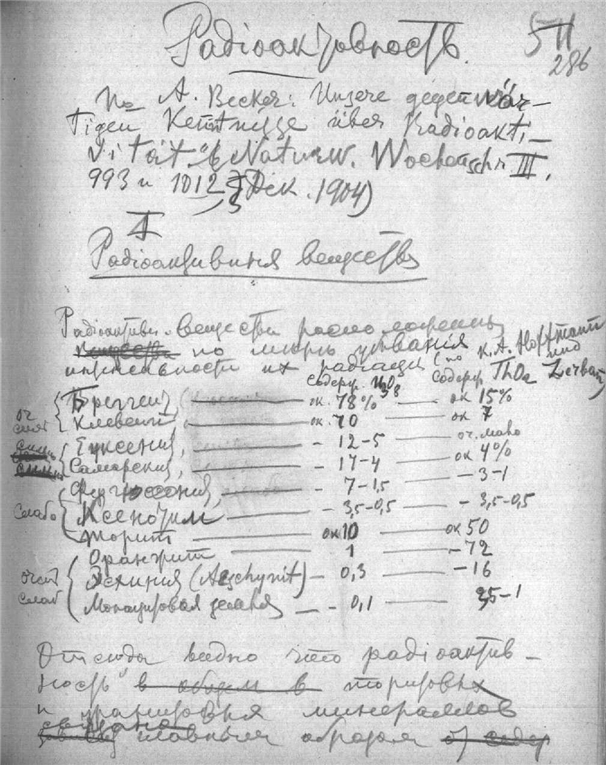 Радіоактивность.
5II
286
По A. Becker: Unsere gegenwär-
tigen Kenntnisse über Radioakti-
vität. Naturw. Wochenschr. III.
993 и 1012 (Дек. 1904)
I
Радіоактивныя вещества
Радіоактивн. вещества расположены
по мѣрѣ убыванія
интенсивности их радіаціи (по K. A. Hoffmann und Zerban)
содерж. U3O8 содерж. ThO2
Бреггерит — ок. 78% — ок 15%
оч. сильн Клевеит — ок. 70 — ок 7
Еуксенит, — 12-5 — оч. мало
Самарскит, — 17-4 — ок 4%
Фергюсонит, — 7-1,5 — 3-1
слабо Ксенотим — 3,5-0,5 — 3,5-0,5
Торит — ок 10 — ок 50
Оранжит — 1 — 72
очен слаб Эсхинит (Aeschynit) — 0,3 — 16
Монацитовая земля — 0,1 — 35-1
Отсюда видно что радіоактив-
ность в общем в торіевых
и ураніевых минералов
связана главным образом